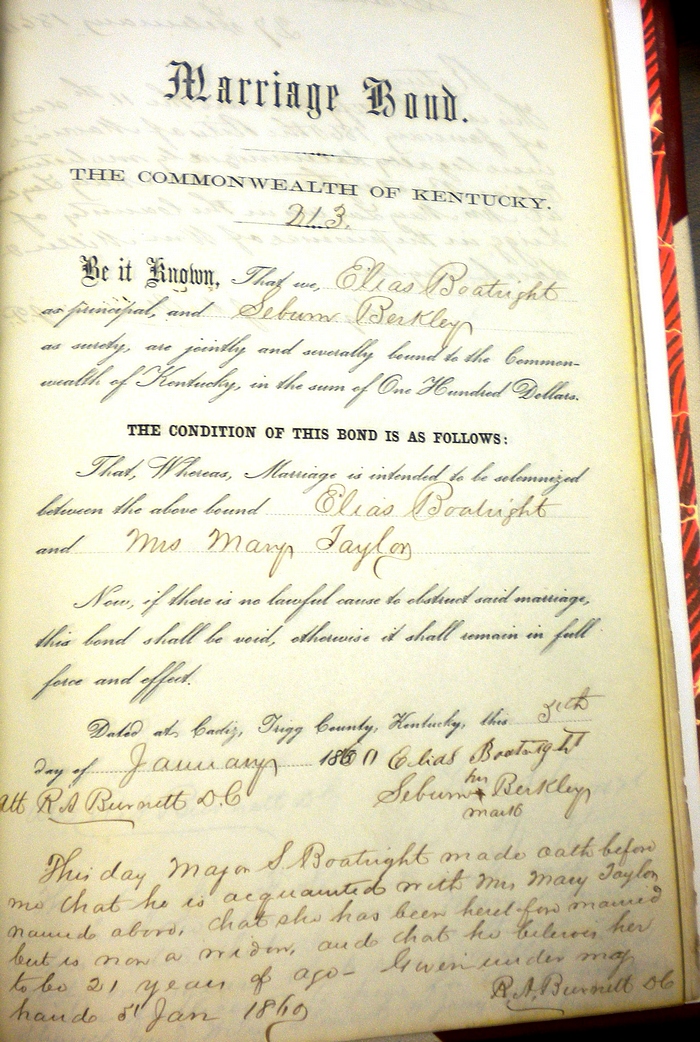 Marriage Bond.
THE COMMONWEALTH OF KENTUCKY.
213.
Be it Known, That we, Elias Boatright
as principal, and Seburn Berkley
as surety, are jointly and severally bound to the Common-
wealth of Kentucky, in the sum of One Hundred Dollars.
THE CONDITION OF THIS BOND IS AS FOLLOWS:
That, Whereas, Marriage is intended to be solemnized
between the above bound Elias Boatright
and Mrs Mary Taylor
Now, if there is no lawful cause to obstruct said marriage,
this bond shall be void, otherwise it shall remain in full
force and effect.
Dated at Cadiz, Trigg County, Kentucky, this 5th
day of January 1860 Elias Boatright
his
Att R A Burnett D.C Seburn x Berkley
mark
This day Major S. Boatright made oath before
me that he is acquainted with Mrs Mary Taylor
named above, that she has been heretofore married
but is now a widow, and that he believes her
to be 21 years of age - Given under my
hand 5 Jan 1860 R. A. Burnett DC